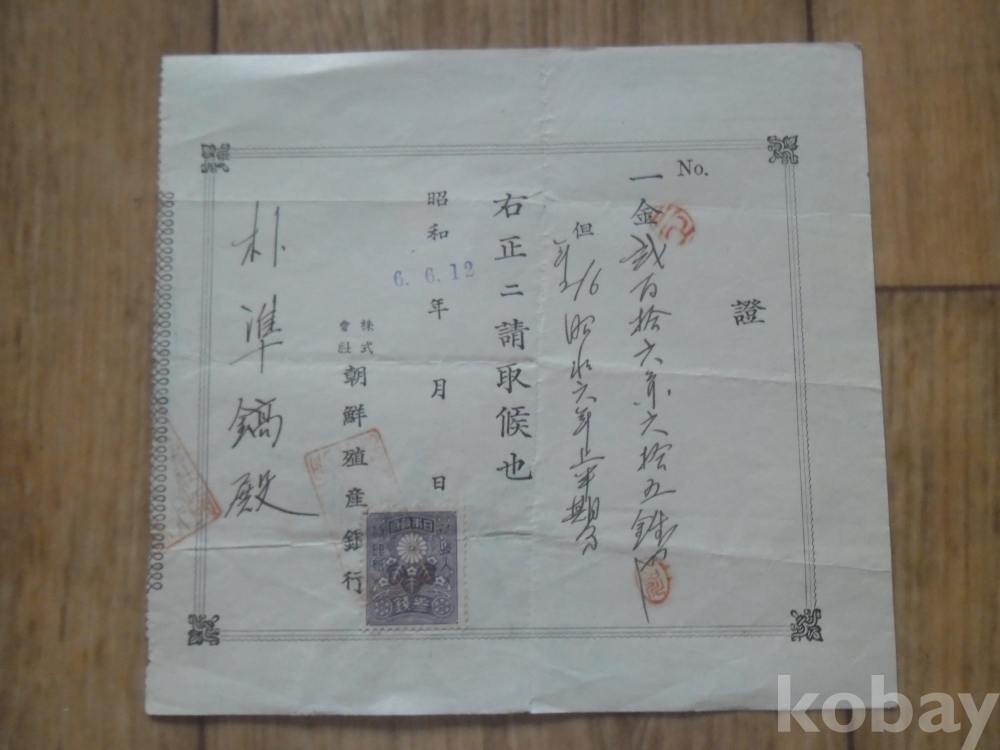 No.
證
一金 貳百拾六円六拾五錢也
但 年2/6 昭和六年上半期分
右正ニ請取候也
昭和 年 月 日
6. 6. 12
株式會社 朝鮮殖産銀行
朴準鎬殿
kobay